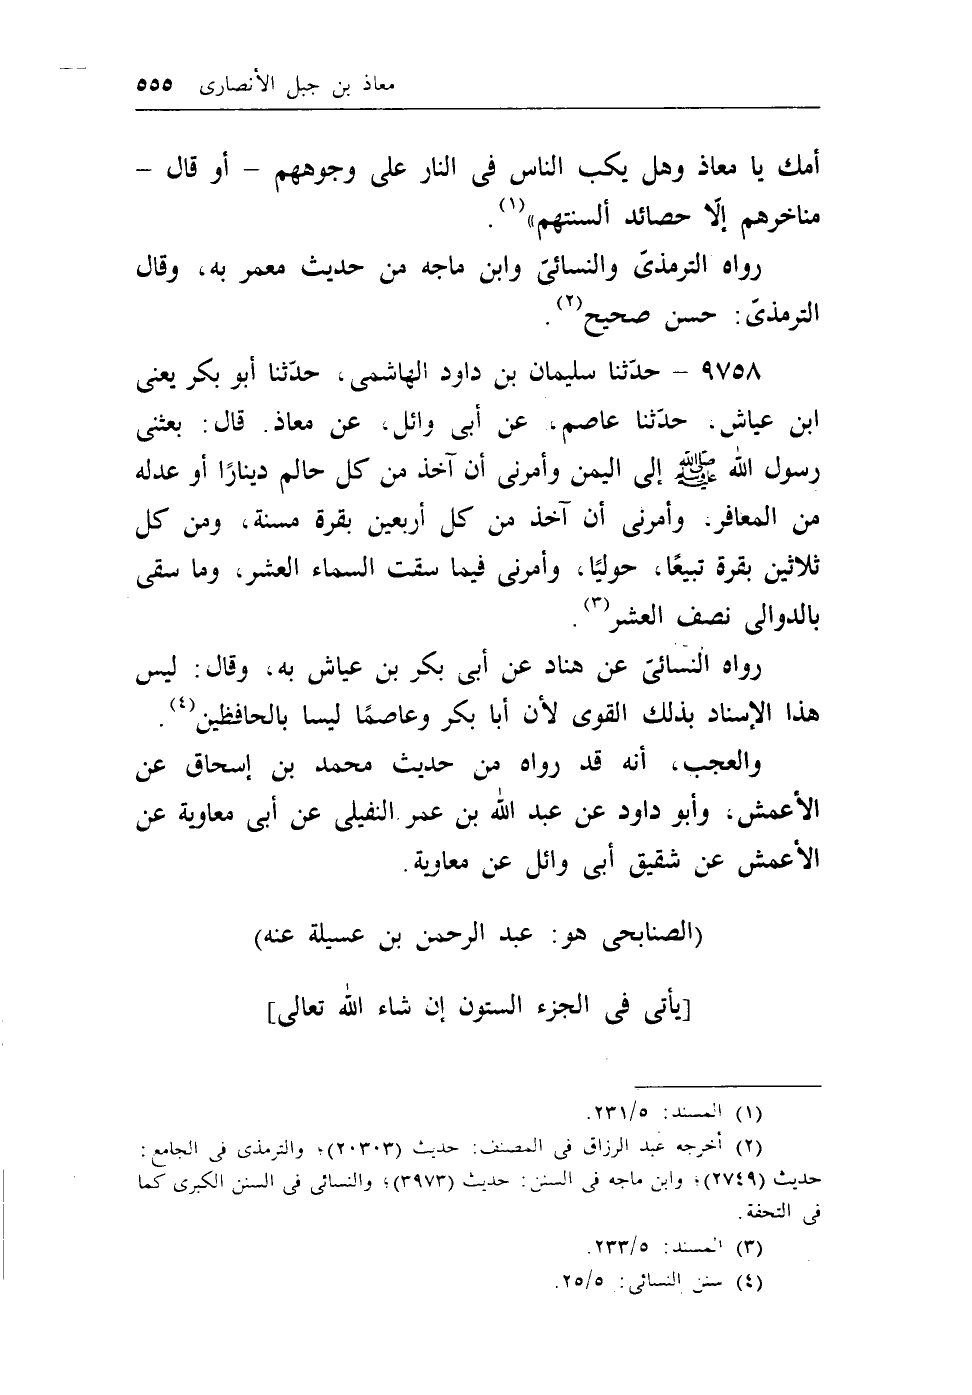 معاذ بن جبل الأنصارى ٥٥٥
أمك يا معاذ وهل يكب الناس فى النار على وجوههم – أو قال –
مناخرهم إلّا حصائد ألسنتهم»(١).
رواه الترمذىّ والنسائىّ وابن ماجه من حديث معمر به، وقال
الترمذىّ: حسن صحيح(٢).
٩٧٥٨ – حدّثنا سليمان بن داود الهاشمى، حدّثنا أبو بكر يعنى
ابن عياش، حدّثنا عاصم، عن أبى وائل، عن معاذ. قال: بعثنى
رسول الله ﷺ إلى اليمن وأمرنى أن آخذ من كل حالم دينارًا أو عدله
من المعافر. وأمرنى أن آخذ من كل أربعين بقرة مسنة، ومن كل
ثلاثين بقرة تبيعًا، حوليًا، وأمرنى فيما سقت السماء العشر، وما سقى
بالدوالى نصف العشر(٣).
رواه النسائىّ عن هناد عن أبى بكر بن عياش به، وقال: ليس
هذا الإسناد بذلك القوى لأن أبا بكر وعاصمًا ليسا بالحافظين(٤).
والعجب، أنه قد رواه من حديث محمد بن إسحاق عن
الأعمش، وأبو داود عن عبد الله بن عمر النفيلى عن أبى معاوية عن
الأعمش عن شقيق أبى وائل عن معاوية.
(الصنابحى هو: عبد الرحمن بن عسيلة عنه)
[يأتى فى الجزء الستون إن شاء الله تعالى]
(١) المسند: ٢٣١/٥.
(٢) أخرجه عبد الرزاق فى المصنف: حديث (٢٠٣٠٣)؛ والترمذى فى الجامع:
حديث (٢٧٤٩)؛ وابن ماجه فى السنن: حديث (٣٩٧٣)؛ والنسائى فى السنن الكبرى كما
فى التحفة.
(٣) المسند: ٢٣٣/٥.
(٤) سنن النسائى: ٢٥/٥.